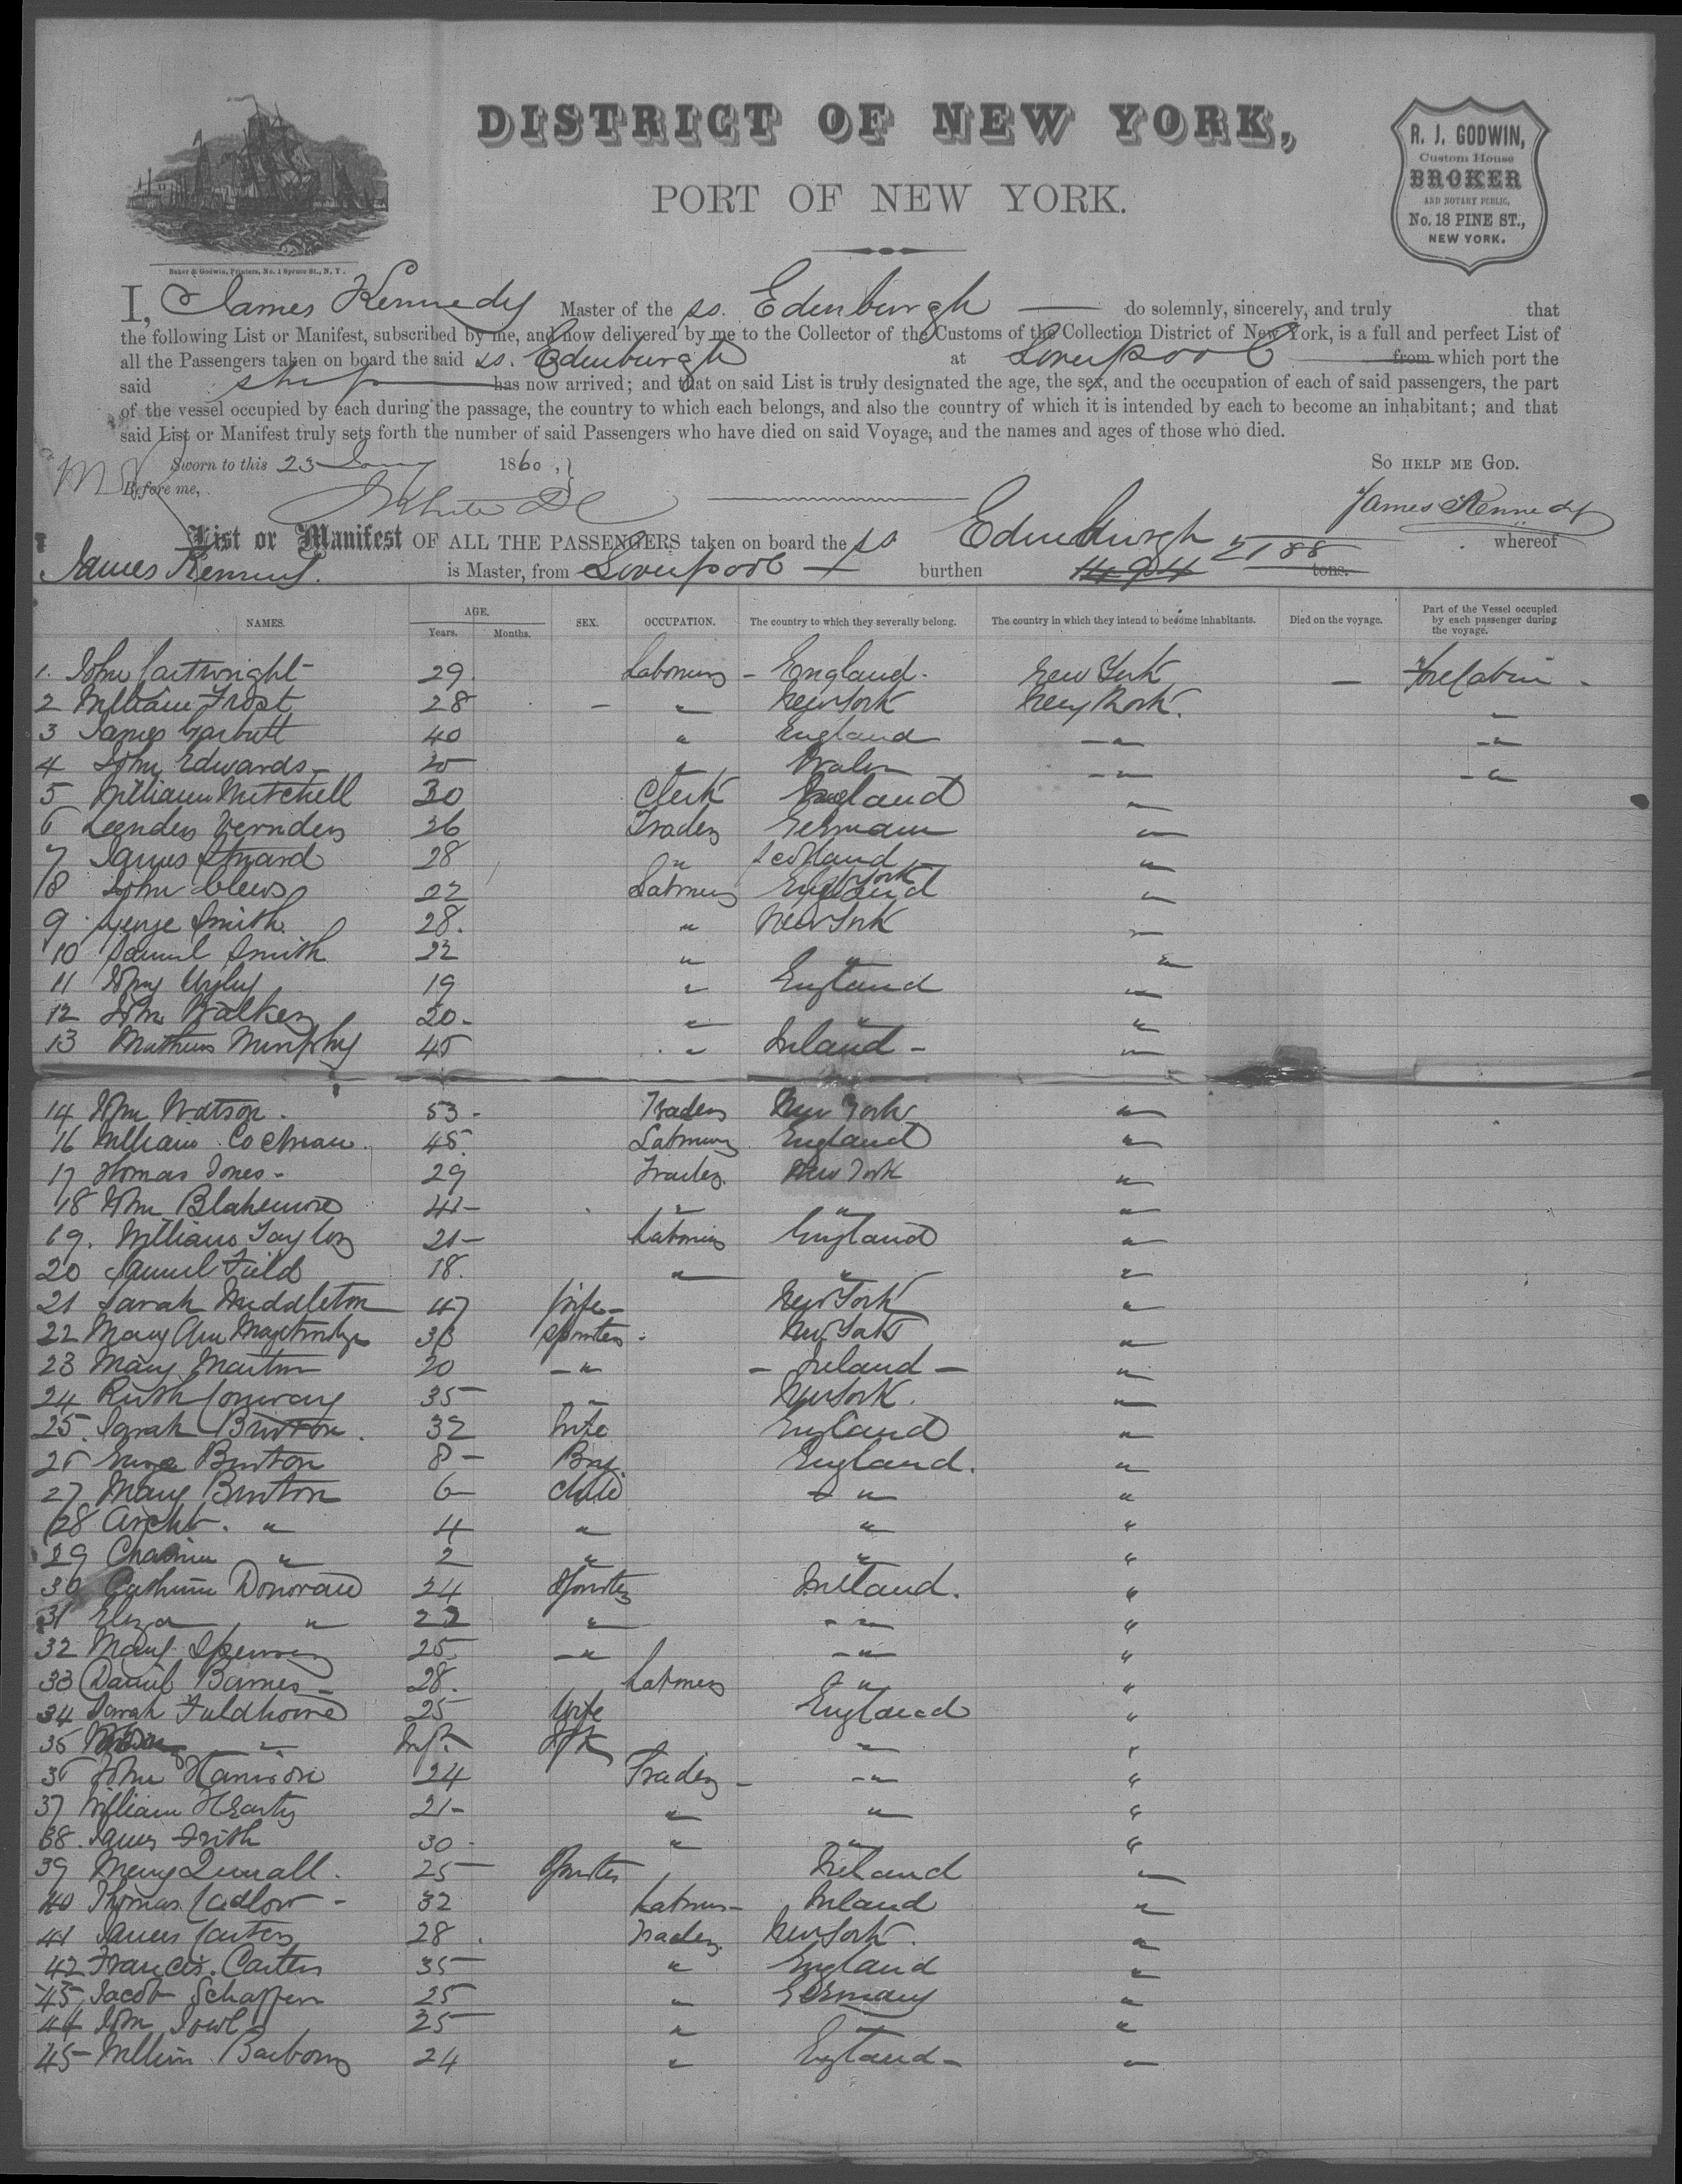 DISTRICT OF NEW YORK,
PORT OF NEW YORK.
R. J. GODWIN,
Custom House
BROKER
AND NOTARY PUBLIC,
No. 18 PINE ST.,
NEW YORK.
Baker & Godwin, Printers, No. 1 Spruce St., N. Y.
I, James Kennedy Master of the ss. Edinburgh do solemnly, sincerely, and truly that
the following List or Manifest, subscribed by me, and now delivered by me to the Collector of the Customs of the Collection District of New York, is a full and perfect List of
all the Passengers taken on board the said ss. Edinburgh at Liverpool from which port the
said ship has now arrived; and that on said List is truly designated the age, the sex, and the occupation of each of said passengers, the part
of the vessel occupied by each during the passage, the country to which each belongs, and also the country of which it is intended by each to become an inhabitant; and that
said List or Manifest truly sets forth the number of said Passengers who have died on said Voyage, and the names and ages of those who died.
Sworn to this 23 1860, SO HELP ME GOD.
Before me,
James Kennedy
List or Manifest OF ALL THE PASSENGERS taken on board the ss Edinburgh whereof
James Kennedy. is Master, from Liverpool burthen 2188 tons.
NAMES. AGE. Years. Months. SEX. OCCUPATION. The country to which they severally belong. The country in which they intend to become inhabitants. Died on the voyage. Part of the Vessel occupied by each passenger during the voyage.
1. John Cartwright 29. Laborers - England. New York — Fore Cabin -
2 William Frost 28 - " New York New York. "
3 James Garbutt 40 " England " "
4 John Edwards 20 " Wales " "
5 William Mitchell 30 Clerk England "
6 26 Trader German "
7 James 28 " Scotland "
8 John Clews 22 Laborers England "
9 George Smith 28. " New York "
10 Samuel Smith 22 " " "
11 John 19 " England "
12 John Walker 20- " " "
13 Murphy 45 " Ireland - "
14 John Watson. 53- Trader New York "
16 William Cochrane. 45. Laborers England "
17 Thomas Jones- 29 Trader. New York "
18 John Blakemore 41- " " "
19. William Taylor 21- Laborers England "
20 Samuel Field 18. " " "
21 Sarah Middleton 47 Wife- New York "
22 Mary Ann 33 Spinster. New York "
23 Mary Martin 20 " - Ireland - "
24 Ruth Conway 35 " New York. "
25. Sarah Burton. 32 Wife England "
26 Burton 8- Boy England. "
27 Mary Burton 6 Child " "
28 Archb. " 4 " " "
29 " 2 " " "
30 Donovan 24 Spinster Ireland. "
31 Eliza " 22 " " "
32 Mary 25. " " "
33 Daniel Barnes 28. Laborers " "
34 Sarah 25 Wife England "
35 " Inft. " "
36 John Harrison 24 Trader - " "
37 William 21- " " "
38. James Frith 30- " " "
39 25 Spinster Ireland "
40 Thomas Cadlow - 32 Laborers- Ireland "
41 James Carter 28. Trader. New York. "
42 Francis. Carter 35 " England "
43 Jacob Schaffer 25 " Germany "
44 John 25 " " "
45 William 24 " England - "